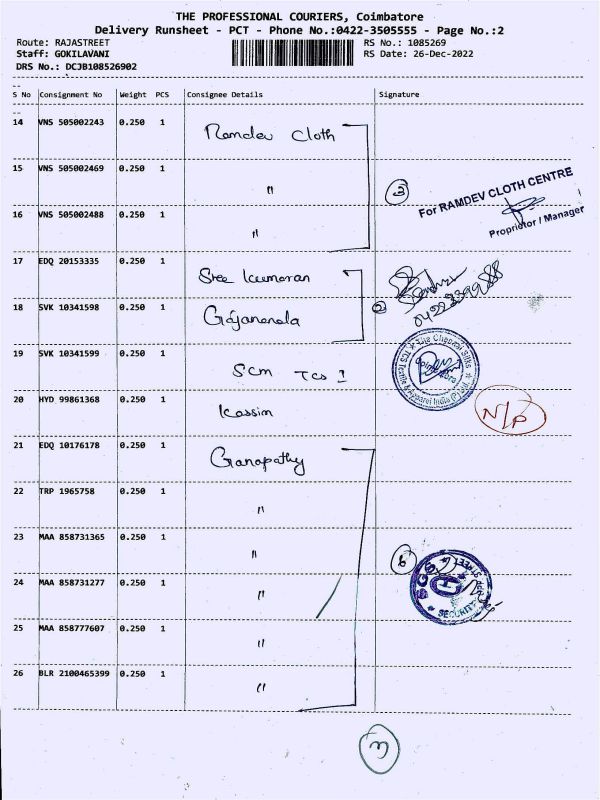 THE PROFESSIONAL COURIERS, Coimbatore
Delivery Runsheet - PCT - Phone No.:0422-3505555 - Page No.:2
Route: RAJASTREET
RS No.: 1085269
Staff: GOKILAVANI
RS Date: 26-Dec-2022
DRS No.: DCJB108526902
S No Consignment No Weight PCS Consignee Details Signature
14 VNS 505002243 0.250 1 Ramdev Cloth
15 VNS 505002469 0.250 1 "
3
For RAMDEV CLOTH CENTRE
Proprietor / Manager
16 VNS 505002488 0.250 1 "
17 EDQ 20153335 0.250 1 Sree Kumaran
18 SVK 10341598 0.250 1 Gajananda
2
19 SVK 10341599 0.250 1 SCM TCS 1
The Chennai Silks
TCS Textile & Apparel India (P) Ltd.
20 HYD 99861368 0.250 1 Kassim
N/P
21 EDQ 10176178 0.250 1 Ganapathy
22 TRP 1965758 0.250 1 "
23 MAA 858731365 0.250 1 "
6
SGS
SECURITY
24 MAA 858731277 0.250 1 "
25 MAA 858777607 0.250 1 "
26 BLR 2100465399 0.250 1 "